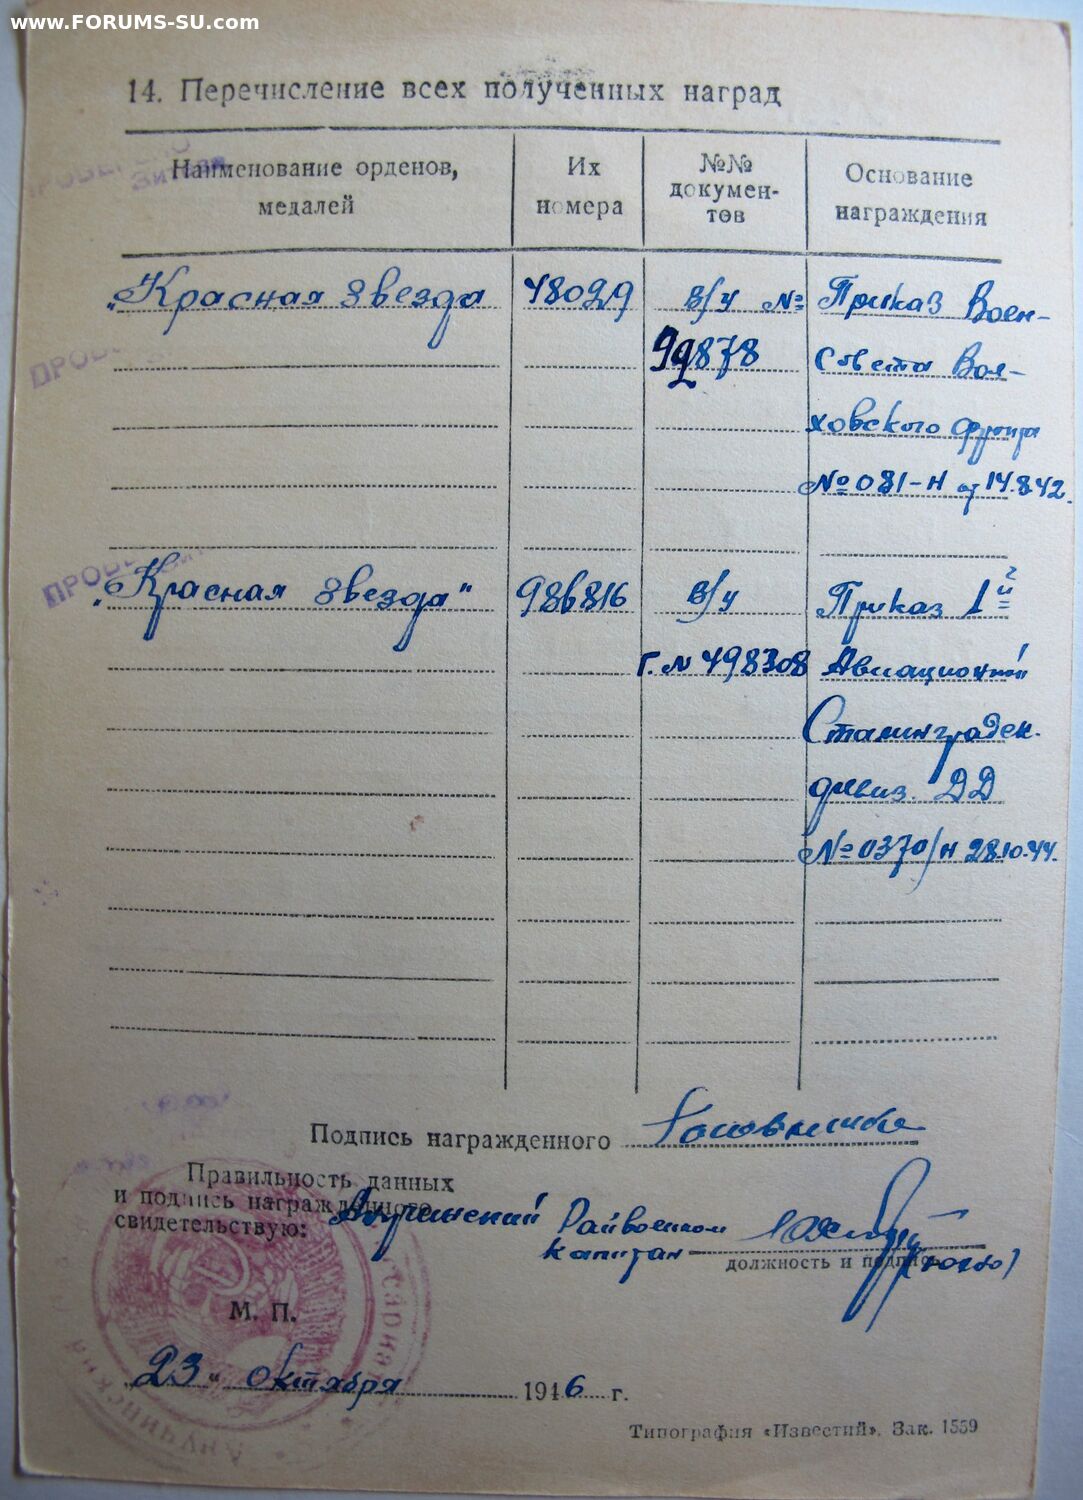 www.FORUMS-SU.com
14. Перечисление всех полученных наград
Наименование орденов, медалей
Их номера
№№ документов
Основание награждения
„Красная звезда 48029 в/у № Приказ Воен-
99878 Совета Вол-
ховского фронта
№ 081-н от 14.8.42.
ПРОВЕ
„Красная звезда" 986816 в/у Приказ 1й
г. № 498308 Авиационной
Сталинград.
дивиз. ДД
№ 0370/н 28.10.44.
Подпись награжденного
Правильность данных
и подпись награжденного
свидетельствую: Анучинский Райвоенком
капитан
должность и подпись
М. П.
23 " октября 1946 г.
Типография «Известий». Зак. 1559